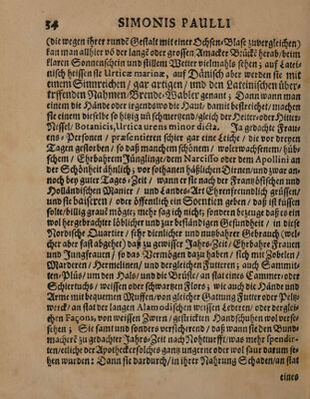 34 SIMONIS PAULLI
(die wegen ihrer rundē Gestalt mit einer Ochsen-Blase zuvergleichen)
kan man allhier vō der langē oder grossen Amacker Brückē herab/ beim
klaren Sonnenschein und stillem Wetter vielmahls sehen; auf Latei-
nisch heissen sie Urticæ marinæ, auf Dänisch aber werden sie mit
einem Sinnreichen/ gar artigen/ und den Lateinischen über-
treffenden Nahmen Brende-Wabler genant; Dann wann man
einem die Hände oder irgendswo die Haut/ damit bestreichet/ machen
sie einem dieselbe so hitzig uñ schmertzend/ gleich der Heiter- oder Hitter-
Nissel/ Botanicis, Urtica urens minor dicta. Ja gedachte Frau-
ens Personen/ præsentieren schier gar eine Leiche/ die vor dreyen
Tagen gestorben/ so daß manchem schönem/ wolerwachsenem/ hüb-
schem/ Ehrbahrem Jünglinge/ dem Narcisso oder dem Apollini an
der Schönheit ähnlich; vor sothanen häßlichen Dirnen/ und zwar an-
noch bey guter Tages-Zeit/ wann er sie nach der Frantzösischen und
Holländischen Manier/ und Landes-Art Ehrenfreundlich grüssen/
und sie baiseren/ oder öffentlich ein Soentien geben/ daß ist küssen
solte/ billig grauē mögte; mehr sag ich nicht/ sondern bezeuge daß es ein
wol hergebrachter löblicher und zur beständigen Gesundheit/ in diese
Nordische Quartier/ sehr dienlicher und nutzbahrer Gebrauch (wel-
cher aber fast abgehet) daß zu gewisser Jahrs-Zeit/ Ehrbahre Frauen
und Jungfrauen/ so das Vermögen dazu haben/ sich mit Zobelen/
Marderen/ Hermelinen/ und dergleichen Futteren; auch Sammit-
ten-Plüß/ um den Hals/ und die Brüste/ an stat eines Cammer- oder
Schiertuchs/ weissen oder schwartzen Flors; wie auch die Hände und
Arme mit bequemen Muffen/ von gleicher Gattung Futter oder Peltz-
werck/ an stat der langen Alamodischen weissen Lederen/ oder derglei-
chen Façons, von weissen Zwirn/ gestrickten Handschuhen wol verse-
hen; Sie samt und sonders versicherend/ daß wann sie den Bund-
macherē zu gedachter Jahrs-Zeit nach Nohtturfft/ was mehr spendir-
ten/ etliche der Apotheckersolches gantz ungerne oder wol saur darum se-
hen wurden: Dann sie dardurch/ in ihrer Nahrung Schaden/ an stat
eines